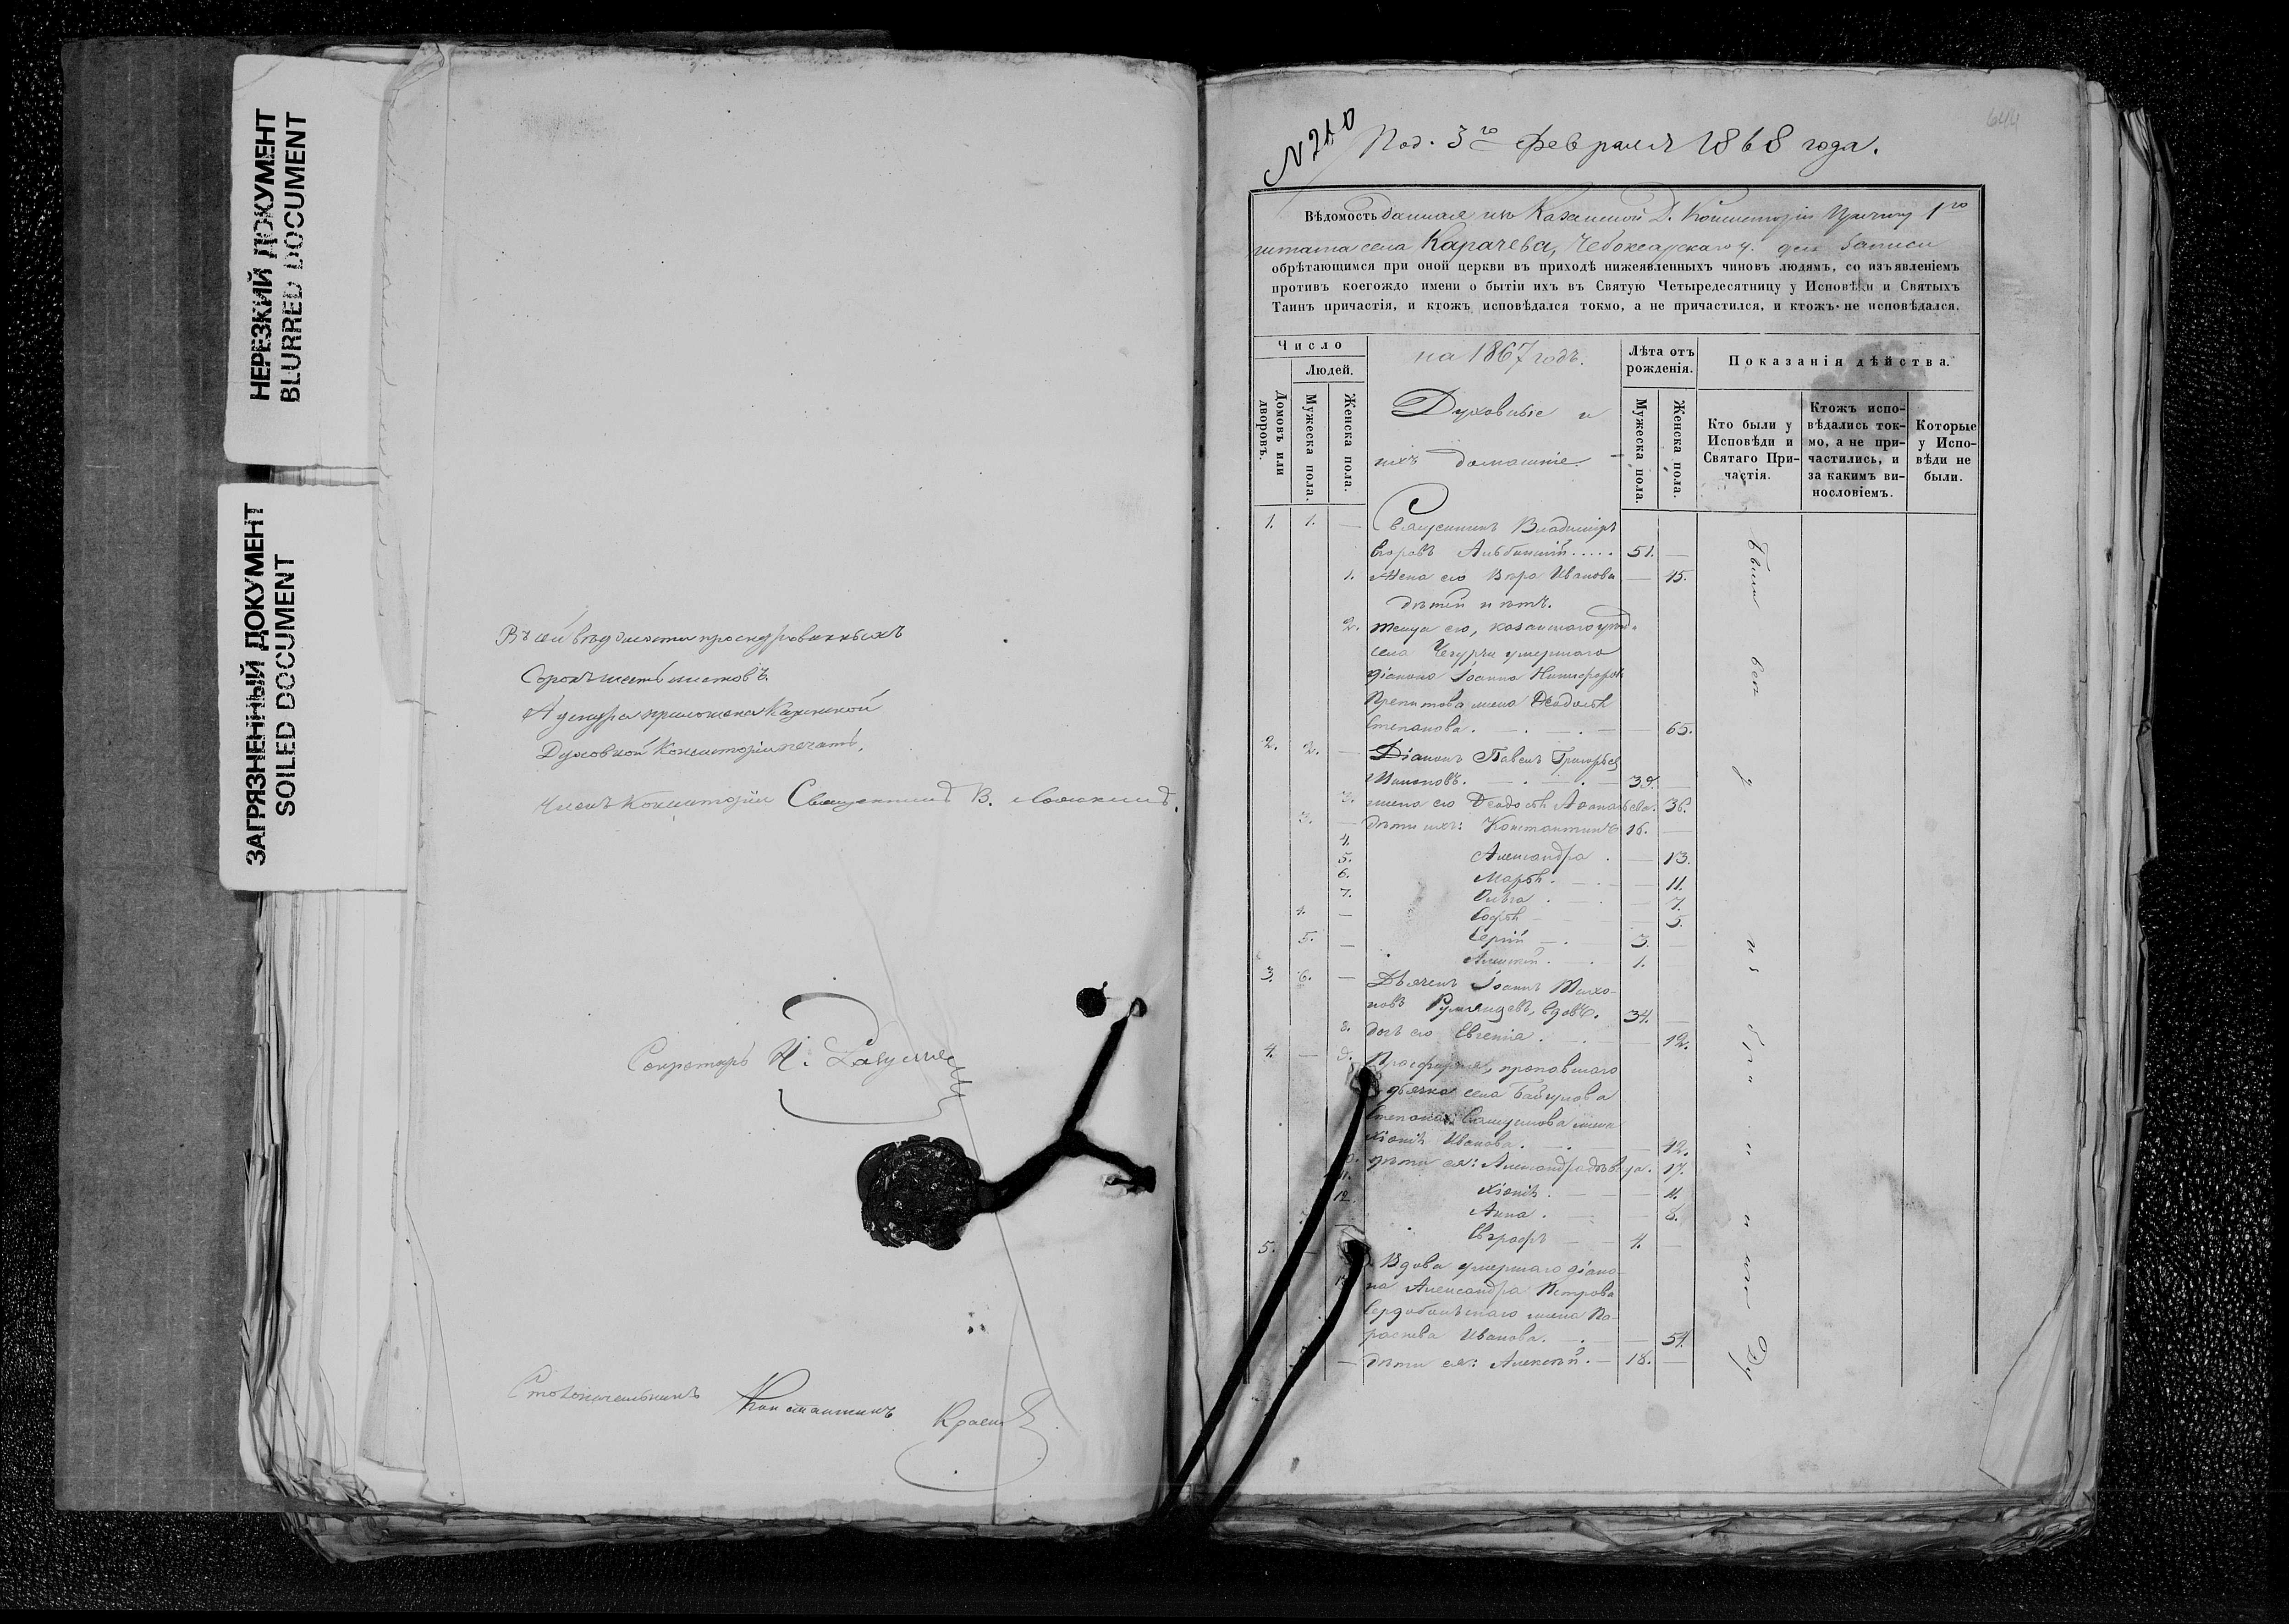 НЕРЕЗКИЙ ДОКУМЕНТ
BLURRED DOCUMENT
ЗАГРЯЗНЕННЫЙ ДОКУМЕНТ
SOILED DOCUMENT
Въ сей вѣдомости прошнурованныхъ
Сорокъ шесть листовъ.
А у шнура приложена Казенной
Духовной Консисторіи печать.
Членъ Консисторіи Священникъ В.
Секретарь И.
Столоначальникъ Константинъ
N 240
Под. 3го Февраля 1868 года.
Вѣдомость данная изъ Казанской Д. Консисторіи Причту 1го
штата села Карачева, Чебоксарскаго у. для записи
обрѣтающимся при оной церкви въ приходѣ нижеявленныхъ чиновъ людямъ, со изъявленіемъ
противъ коегождо имени о бытіи ихъ въ Святую Четыредесятницу у Исповѣди и Святыхъ
Таинъ причастія, и ктожъ исповѣдался токмо, а не причастился, и ктожъ не исповѣдался.
Число
Людей.
Домовъ или дворовъ.
Мужеска пола.
Женска пола.
на 1867 годъ.
Духовные и
ихъ домашніе.
Лѣта отъ рожденія.
Мужеска пола.
Женска пола.
Показанія дѣйства.
Кто были у Исповѣди и Святаго Причастія.
Ктожъ исповѣдались токмо, а не причастились, и за какимъ винословіемъ.
Которые у Исповѣди не были.
1. 1. — Священникъ Владиміръ
Егоровъ Альбинскій..... 51. —
1. Жена его Вѣра Иванова — 45.
дѣтей нѣтъ.
2. Теща его, казанскаго уѣзда
села умершаго
діакона Іоанна Никифорова
жена Ѳеодосія
Степанова. — 65.
2. 2. — Діаконъ Павелъ Григорьев
39. —
3. жена его Ѳеодосія 36.
3. — дѣти ихъ: Константинъ 16. —
4. Александра — 13.
5. Марія — 11.
6. Ольга — 7.
7. Софія — 5.
4. — Сергій 3. —
5. — Алексѣй 1.
3. 6. — Дьячекъ Іоаннъ Тихо-
новъ Румянцевъ, вдовъ. 34. —
8. дочь его Евгенія. — 12.
4. — 9. Просфорня, пропавшаго
дьячка села Байгулова
Степана жена
Хіонія Иванова. — 42.
дѣти ея: Александра дѣвица. 17.
11. Хіонія — 11.
12. Анна — 8.
Евграфъ — 4. —
5. Вдова умершаго діако-
на Александра Петрова
жена Па-
раскева Иванова. — 54.
— дѣти ея: Алексѣй. — 18. —
Были всѣ у